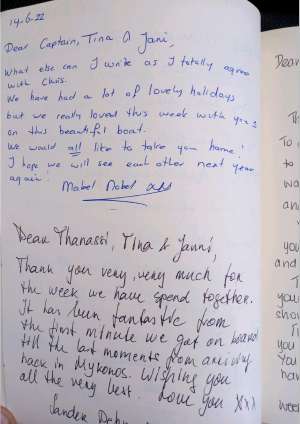 14-6-22
Dear Captain, Tina & Jani,
What else can I write as I totally agree
with Chris.
We have had a lot of lovely holidays
but we really loved this week with you 3
on this beautiful boat.
We would all like to take you home!
I hope we will see each other next year
again!
Mabel
Dear Thanassi, Tina & Janni,
Thank you very, very much for
the week we have spend together.
It has been fantastic from
the first minute we got on board
till the last moments from
back in Mykonos. Wishing you
all the very best. Love you xxx
Sandra
Dear